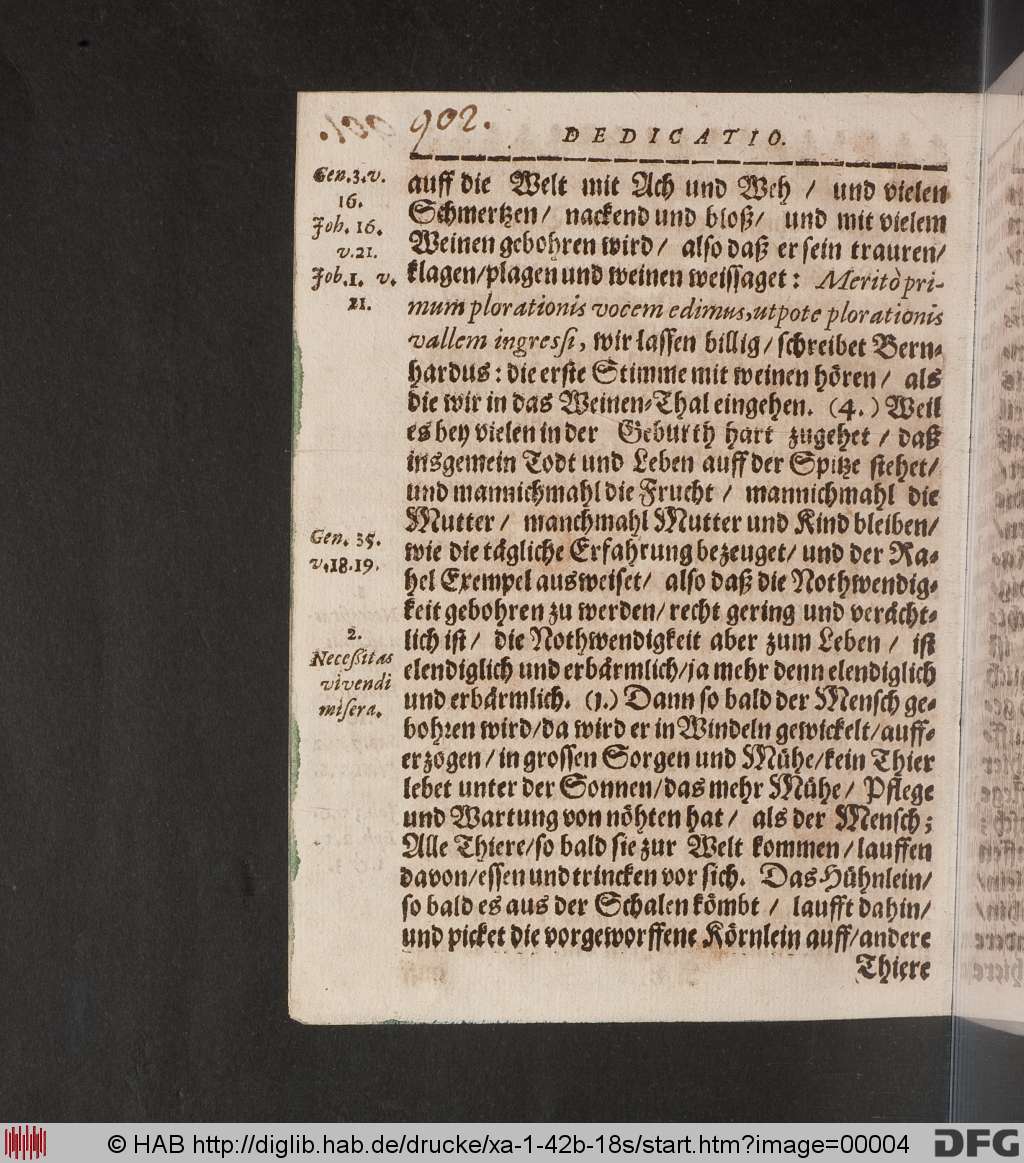 902.
DEDICATIO.
Gen. 3. v.
16.
Joh. 16.
v. 21.
Job. 1. v.
21.
auff die Welt mit Ach und Weh / und vielen
Schmertzen / nackend und bloß / und mit vielem
Weinen gebohren wird / also daß er sein trauren /
klagen / plagen und weinen weissaget: Meritò pri-
mum plorationis vocem edimus, utpote plorationis
vallem ingressi, wir lassen billig / schreibet Bern-
hardus: die erste Stimme mit weinen hören / als
die wir in das Weinen-Thal eingehen. (4.) Weil
es bey vielen in der Geburth hart zugehet / daß
insgemein Todt und Leben auff der Spitze stehet /
und mannichmahl die Frucht / mannichmahl die
Mutter / manchmahl Mutter und Kind bleiben /
Gen. 35.
v. 18. 19.
wie die tägliche Erfahrung bezeuget / und der Ra-
hel Exempel ausweiset / also daß die Nothwendig-
keit gebohren zu werden / recht gering und verächt-
2.
Necessitas
vivendi
misera.
lich ist / die Nothwendigkeit aber zum Leben / ist
elendiglich und erbärmlich / ja mehr denn elendiglich
und erbärmlich. (1.) Dann so bald der Mensch ge-
bohren wird / da wird er in Windeln gewickelt / auff-
erzogen / in grossen Sorgen und Mühe / kein Thier
lebet unter der Sonnen / das mehr Mühe / Pflege
und Wartung von nöhten hat / als der Mensch;
Alle Thiere / so bald sie zur Welt kommen / lauffen
davon / essen und trincken vor sich. Das Hühnlein /
so bald es aus der Schalen kömbt / laufft dahin /
und picket die vorgeworffene Körnlein auff / andere
Thiere
© HAB http://diglib.hab.de/drucke/xa-1-42b-18s/start.htm?image=00004
DFG